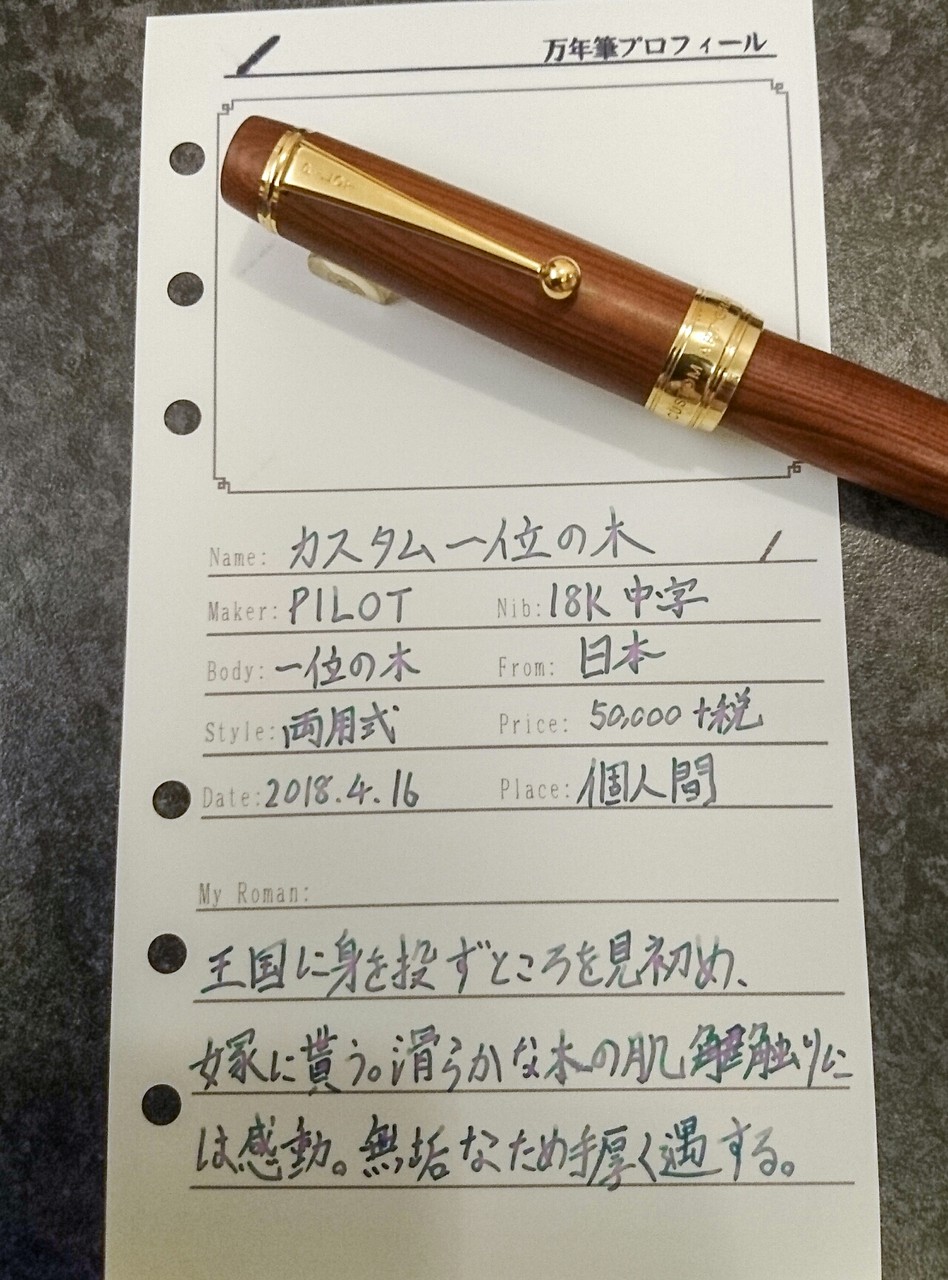 万年筆プロフィール
CUSTOM
Name: カスタム一位の木
Maker: PILOT Nib: 18K 中字
Body: 一位の木 From: 日本
Style: 両用式 Price: 50,000+税
Date: 2018.4.16 Place: 個人間
My Roman:
王国に身を投ずところを見初め、
嫁に貰う。滑らかな木の肌触りに
は感動。無垢なため手厚く遇する。